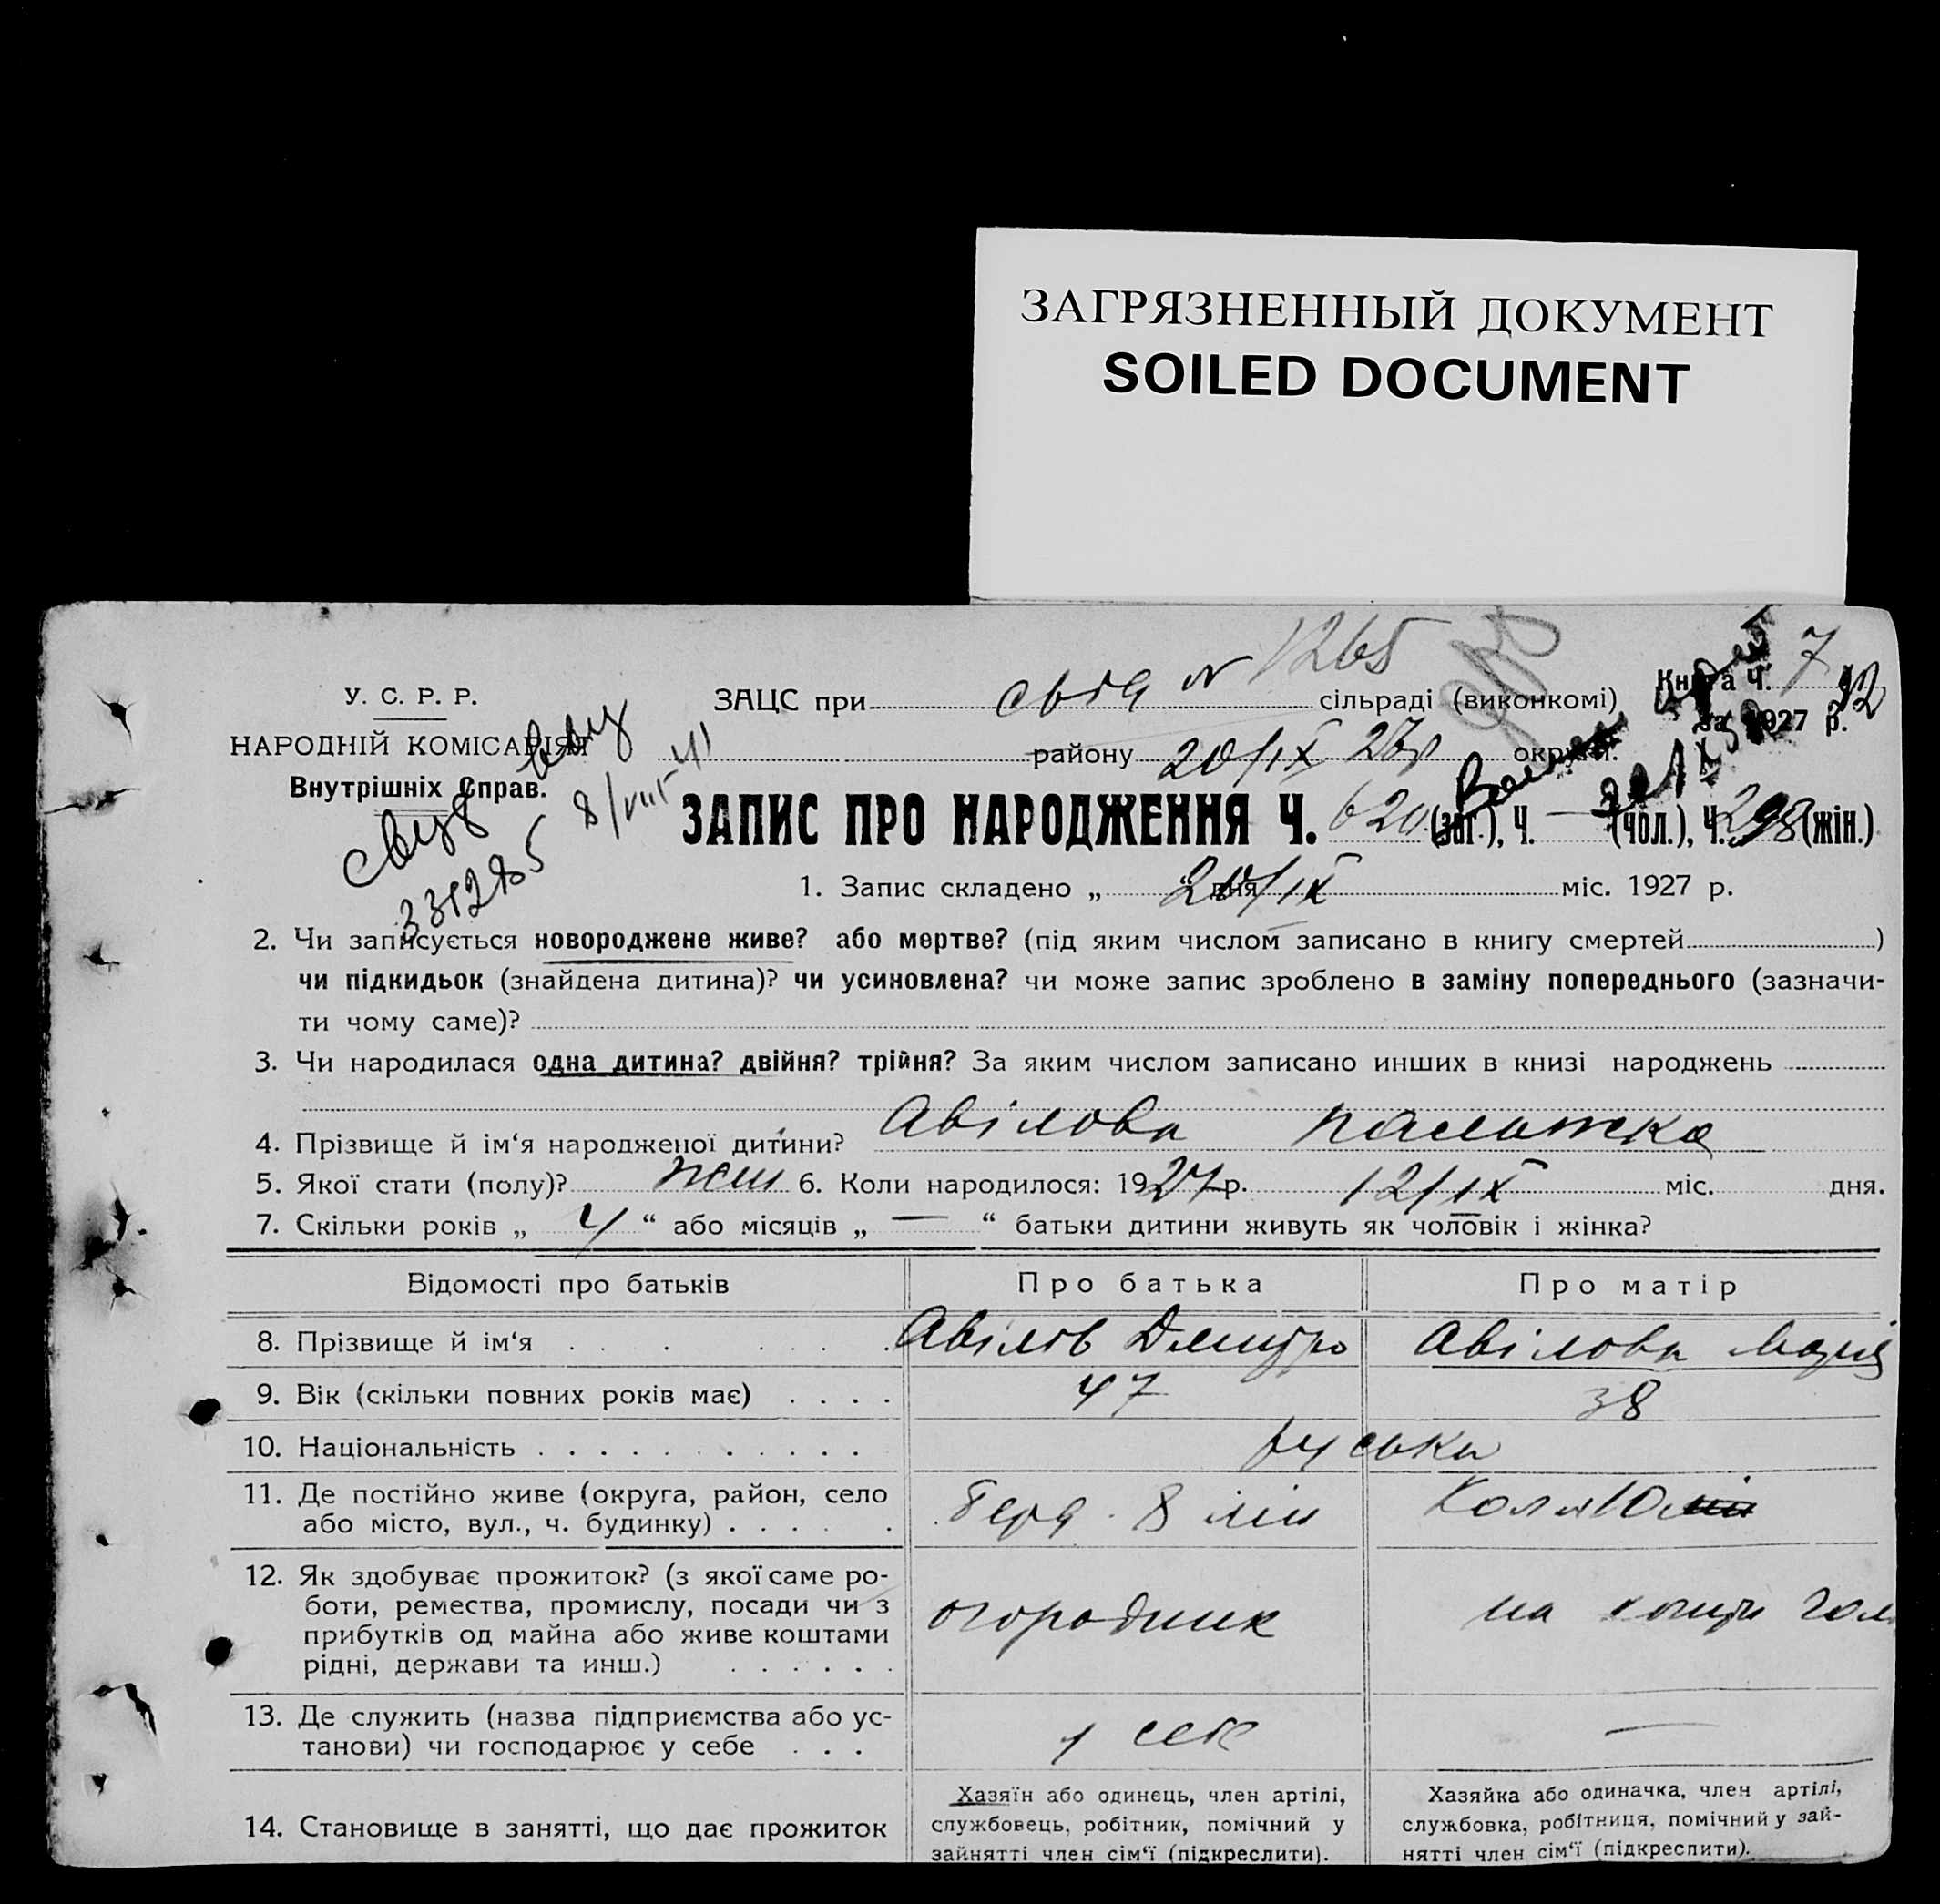 ЗАГРЯЗНЕННЫЙ ДОКУМЕНТ
SOILED DOCUMENT
1265
У. С. Р. Р.
НАРОДНІЙ КОМІСАРІЯТ
Внутрішніх Справ.
8/VIII-41
332285
ЗАЦС при сільраді (виконкомі)
Книга Ч. 7
за 1927 р.
району 20/IX 27р округи.
ЗАПИС ПРО НАРОДЖЕННЯ Ч. 620 (заг.), Ч. — (чол.), Ч. 298 (жін.)
1. Запис складено „ 20/IX “ дня міс. 1927 р.
2. Чи записується новороджене живе? або мертве? (під яким числом записано в книгу смертей )
чи підкидьок (знайдена дитина)? чи усиновлена? чи може запис зроблено в заміну попереднього (зазначи-
ти чому саме)?
3. Чи народилася одна дитина? двійня? трійня? За яким числом записано инших в книзі народжень
4. Прізвище й ім‘я народженої дитини? Авілова Палажка
5. Якої стати (полу)? жін 6. Коли народилося: 1927 р. 12/IX міс. дня.
7. Скільки років „ 4 “ або місяців „ — “ батьки дитини живуть як чоловік і жінка?
Відомості про батьків Про батька Про матір
8. Прізвище й ім‘я Авілов Дмитро Авілова Марія
9. Вік (скільки повних років має) 47 38
10. Національність руськи
11. Де постійно живе (округа, район, село
або місто, вул., ч. будинку) 8 лін
12. Як здобуває прожиток? (з якої саме ро-
боти, ремества, промислу, посади чи з
прибутків од майна або живе коштами
рідні, держави та инш.) огородник на
13. Де служить (назва підприємства або ус-
танови) чи господарює у себе у себе —
14. Становище в занятті, що дає прожиток
Хазяїн або одинець, член артілі,
службовець, робітник, помічний у
зайнятті член сім‘ї (підкреслити).
Хазяйка або одиначка, член артілі,
службовка, робітниця, помічний у зай-
нятті член сім‘ї (підкреслити).